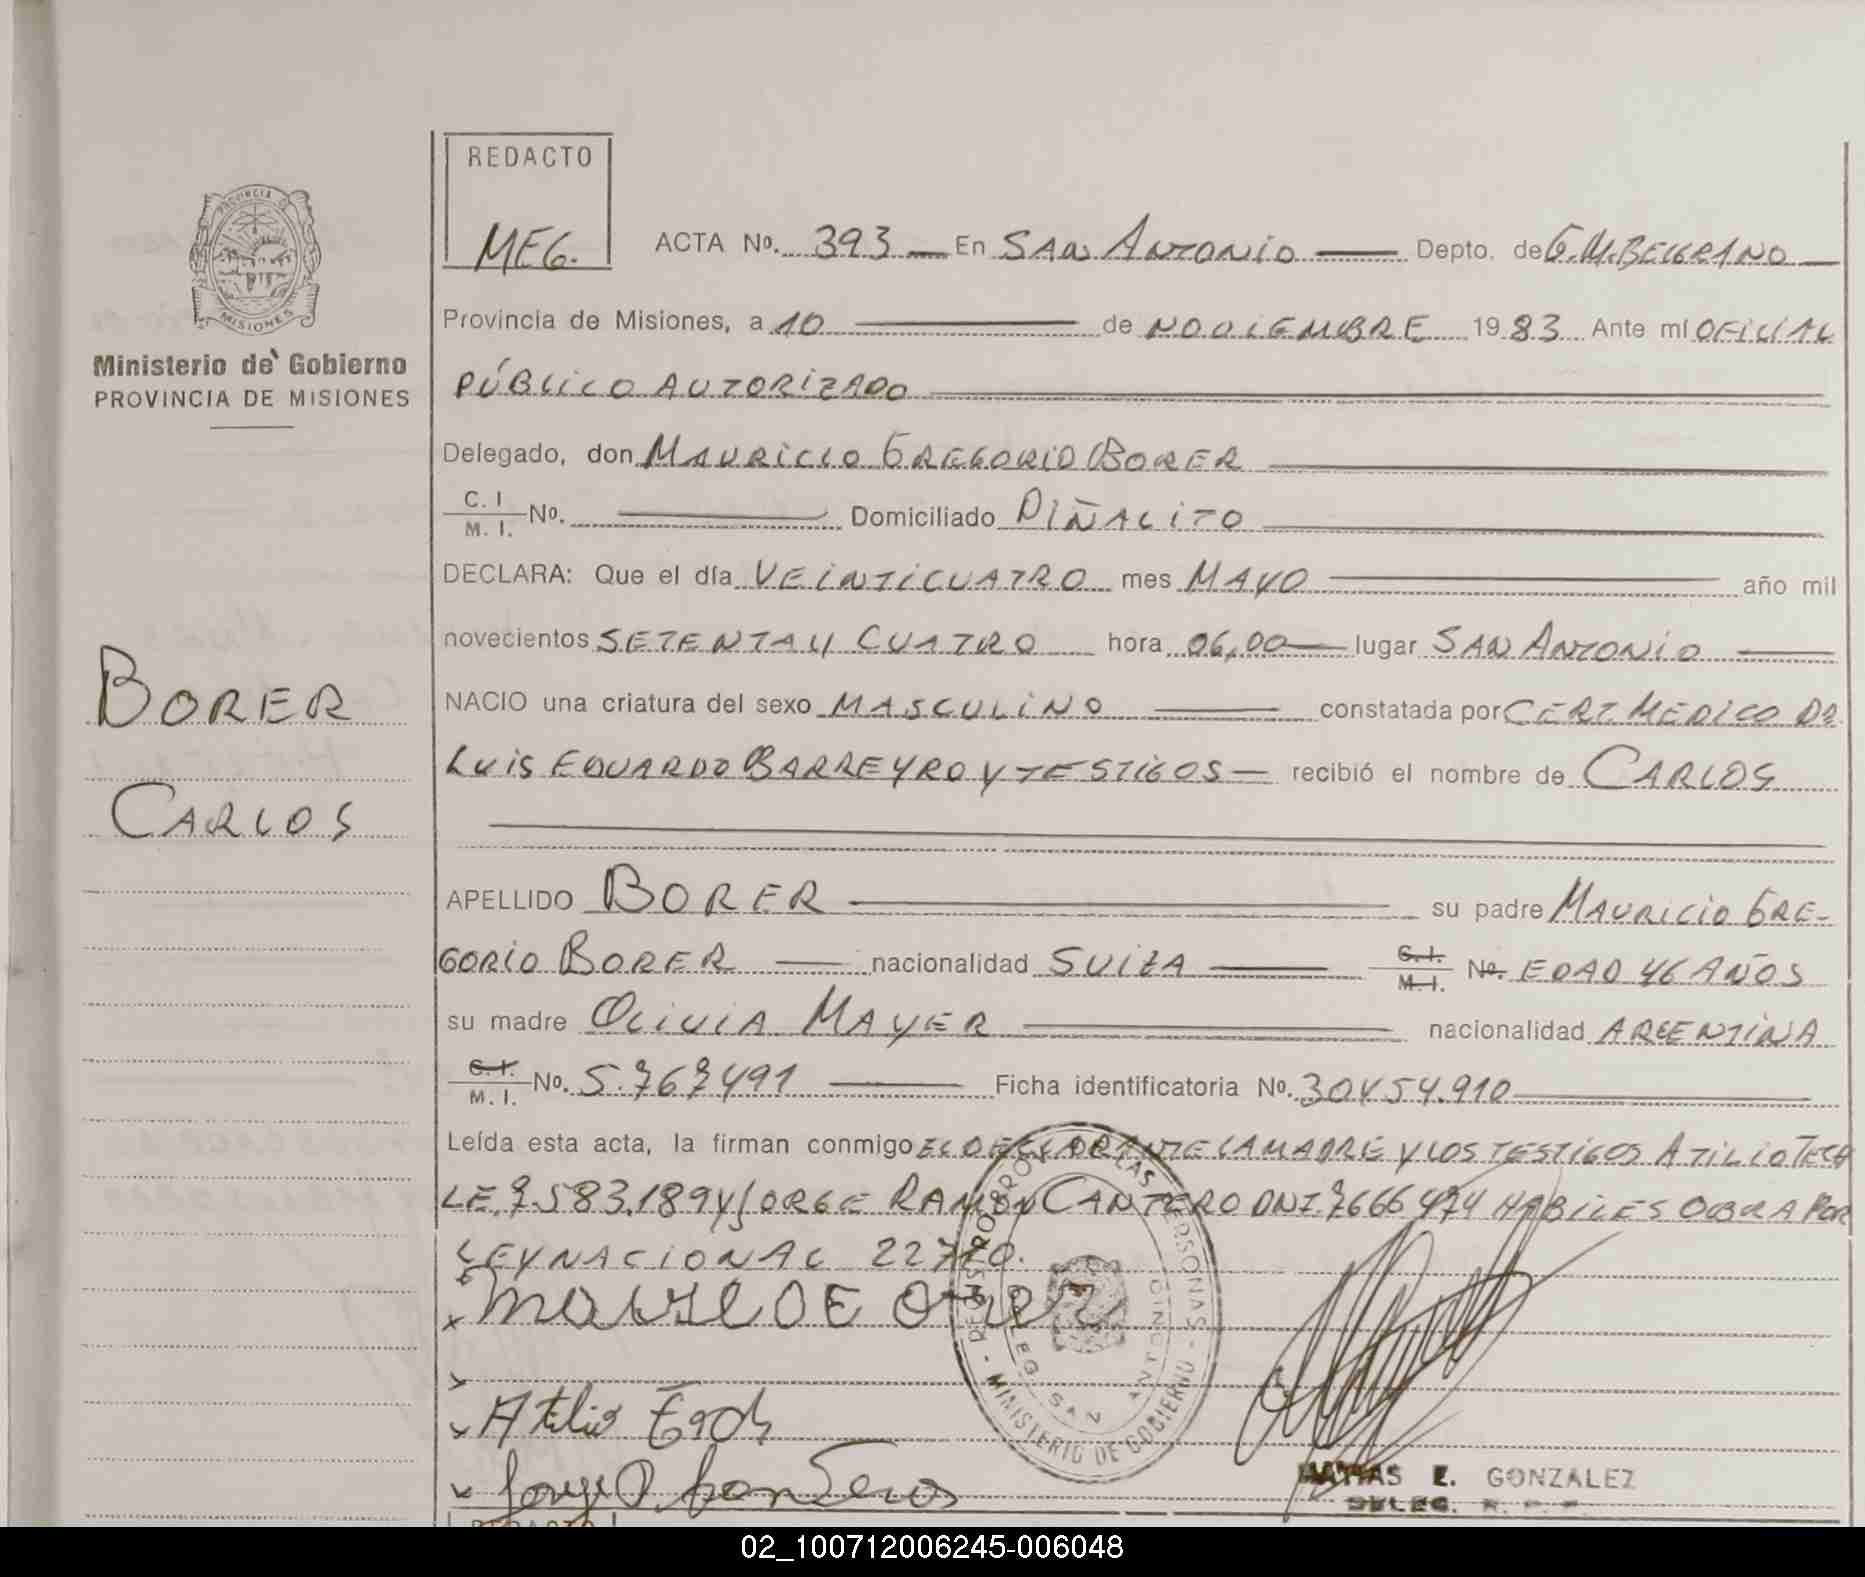 REDACTO
MEG.
ACTA No. 393 En SAN ANTONIO Depto. de G.M.BELGRANO
PROVINCIA DE
MISIONES
Provincia de Misiones, a 10 de NOVIEMBRE 1983 Ante mí OFICIAL
Ministerio de Gobierno
PROVINCIA DE MISIONES
PÚBLICO AUTORIZADO
Delegado, don MAURICIO GREGORIO BORER
C. I
M. I. No. Domiciliado PIÑALITO
DECLARA: Que el día VEINTICUATRO mes MAYO año mil
novecientos SETENTA Y CUATRO hora 06,00 lugar SAN ANTONIO
BORER
NACIO una criatura del sexo MASCULINO constatada por CERT. MEDICO DR.
LUIS EDUARDO BARREYRO Y TESTIGOS recibió el nombre de CARLOS
CARLOS
APELLIDO BORER su padre MAURICIO GRE-
GORIO BORER nacionalidad SUIZA C.I. M.I. No. EDAD 46 AÑOS
su madre OLIVIA MAYER nacionalidad ARGENTINA
C.I. M. I. No. 5.767491 Ficha identificatoria No. 30454.910
Leída esta acta, la firman conmigo EL DECLARANTE LA MADRE Y LOS TESTIGOS ATILIO
LE.7.583.189 Y JORGE RAMON CANTERO DNI.7666474 HABILES OBRA POR
LEY NACIONAL
REGISTRO PROV. DE LAS PERSONAS - MINISTERIO DE GOBIERNO -
DELEG. SAN ANTONIO
Atilio
Jorge R.
MATIAS E. GONZALEZ
DELEG. R. P. P.
REDACTO
02_100712006245-006048